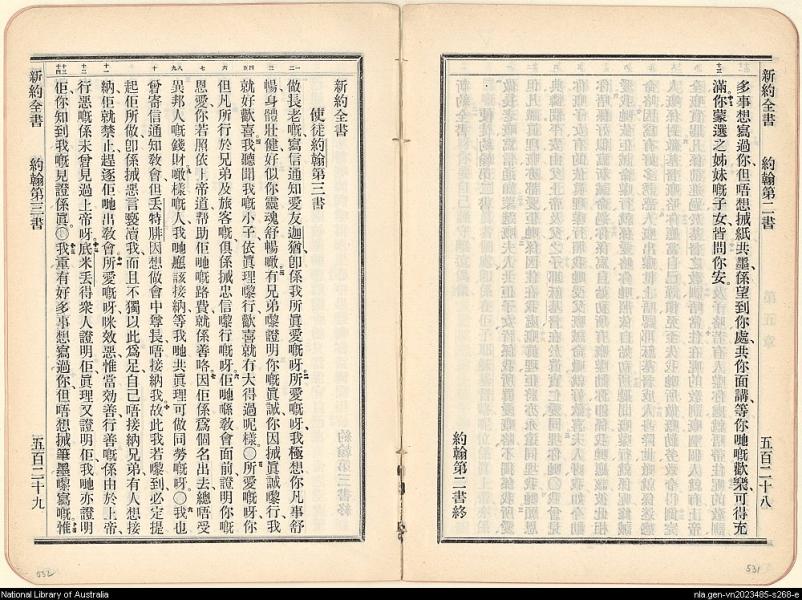 新約全書
約翰第二書
五百二十八
十三
多事想寫過你、但唔想搣紙共墨、係望到你處、共你面講、等你哋嘅歡樂、可得充
滿、你蒙選之姊妹嘅子女、皆問你安
約翰第二書終
新約全書
使徒約翰第三書
做長老嘅、寫信通知愛友迦猶、即係我所眞愛嘅呀、所愛嘅呀、我極想你凡事舒
暢、身體壯健、好似你靈魂舒暢噉、有兄弟嚟、證明你嘅眞誠、你因搣眞誠嚟行、我
就好歡喜、我聽聞我嘅小子、依眞理嚟行、歡喜就冇大得過呢樣、〇所愛嘅呀、你
但凡所行於兄弟、及旅客嘅、俱係搣忠信嚟行嘅呀、佢哋喺敎會面前、證明你嘅
恩愛、你若照依上帝道、帮助佢哋嘅路費、就係善咯、因佢係爲個名出去、總唔受
異邦人嘅錢財、噉樣嘅人、我哋應該接納、等我哋共眞理可做同勞嘅呀、〇我也
曾寄信通知敎會、但丟特腓因想做會中尊長、唔接納我、故此我若嚟到、必定提
起佢所做、卽係搣惡言褻凟我、而且不獨以此爲足、自己唔接納兄弟、有人想接
納、佢就禁止、趕逐佢哋出敎會、所愛嘅呀、咪效惡、惟當効善、行善嘅、係由於上帝、
行惡嘅、係未曾見過上帝呀、底米丟得衆人證明佢、眞理又證明佢、我哋亦證明
佢、你知到我嘅見證係眞、〇我重有好多事想寫過你、但唔想搣筆墨嚟寫嘅、惟
新約全書
約翰第三書
五百二十九
532
531
National Library of Australia
nla.gen-vn2023485-s268-e